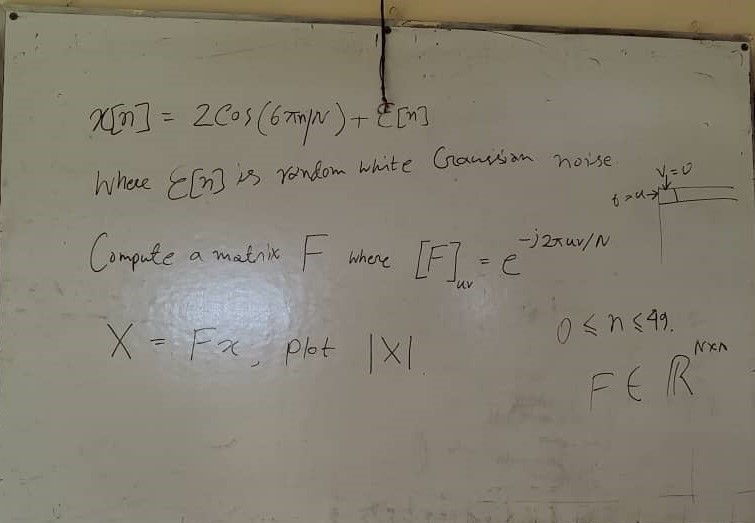 x[n] = 2Cos(6πn/N) + ε[n]
Where ε[n] is random white Gaussian noise
V=0
0=u→
Compute a matrix F where [F]uv = e^-j2πuv/N
X = Fx, plot |X|.
0 ≤ n ≤ 49.
F ∈ ℝ^N×N